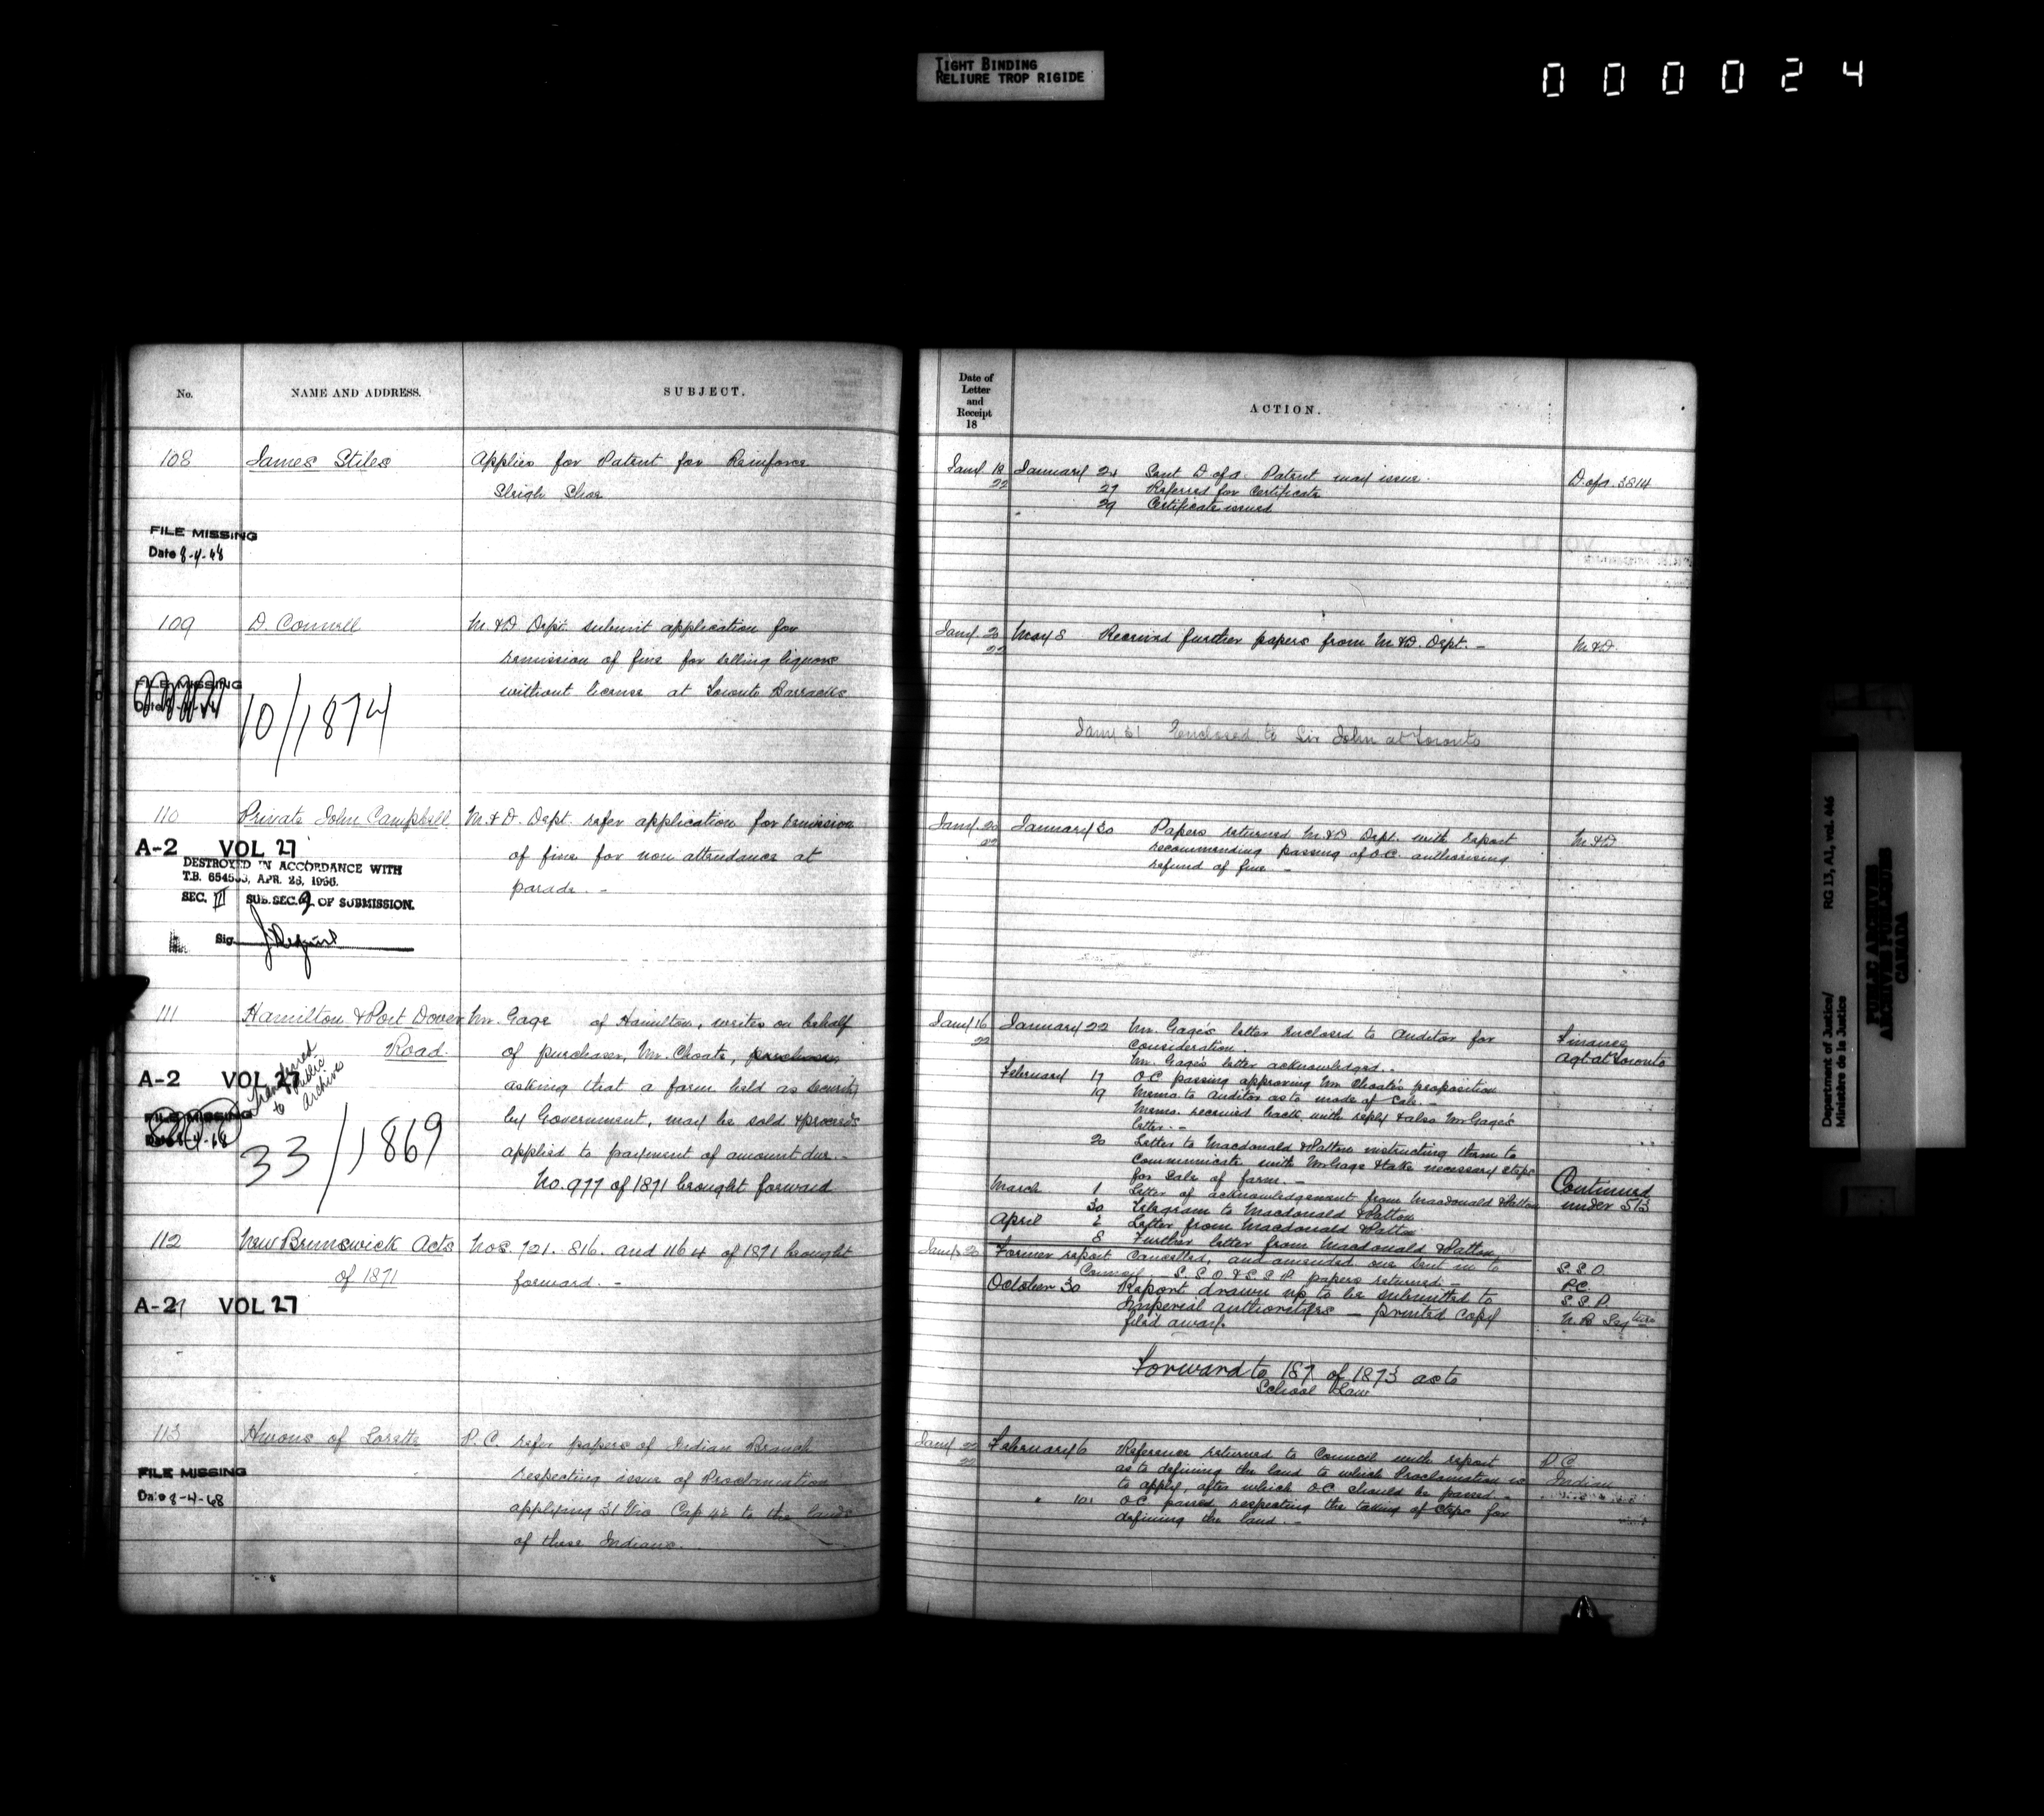 TIGHT BINDING
RELIURE TROP RIGIDE
000024
No.
NAME AND ADDRESS.
SUBJECT.
108
James Stiles
Applies for Patent for Reinforce
Sleigh Shoe
FILE MISSING
Date 8-4-68
109
D. Connell
M. & D Dept. submit application for
remission of fine for selling liquors
without license at Toronto Barracks
FILE MISSING
10/1874
110
Private John Campbell
M. & D. Dept. refer application for remission
of fine for non attendance at
parade. -
A-2 VOL 27
DESTROYED IN ACCORDANCE WITH
T.B. APR. 28, 1966.
SEC. III SUB. SEC. 9 OF SUBMISSION.
Sig.
111
Hamilton & Port Dover
Road.
Mr. Gage of Hamilton, writes on behalf
of purchaser, Mr. Choate, purchaser,
asking that a farm held as security
by Government, may be sold & proceeds
applied to payment of amount due. -
No. 977 of 1871 brought forward
A-2 VOL 27
Transferred
to Public
Archives
FILE MISSING
Date 8-4-68
33/1869
112
New Brunswick Acts
of 1871
Nos. 721. 816. and 1164 of 1871 brought
forward. -
A-2 VOL 27
113
Hurons of Lorette
P.C. refer papers of Indian Branch
respecting issue of Proclamation
applying 31 Vic Cap 42 to the lands
of these Indians.
FILE MISSING
Date 8-4-68
Date of
Letter
and
Receipt
18
ACTION.
Jany 18
22
January 24 Sent D of A Patent may issue.
27 Referred for Certificate
29 Certificate issued
D. of A. 3814
Jany 2
22
May 8 Received further papers from M. & D. Dept. -
M. & D.
Jany 31 Enclosed to Sir John at Toronto
Jany 20
22
January 30 Papers returned M. & D Dept. with report
recommending passing of O.C. authorising
refund of fine. -
M. & D
Jany 16
22
January 22 Mr. Gage's letter enclosed to Auditor for
consideration.
Mr. Gage's letter acknowledged. -
February 17 O.C. passing approving Mr. Choate's proposition
19 Memo. to Auditor as to mode of Sale. -
Memo. received back with reply & also Mr Gage's
letter. -
20 Letter to Macdonald & Patton instructing them to
communicate with Mr Gage & take necessary steps
for Sale of farm. -
March 1 Letter of acknowledgement from Macdonald & Patton
30 Telegram to Macdonald & Patton
April 2 Letter from Macdonald & Patton
8 Further letter from Macdonald & Patton
Finance
Agt at Toronto
Continued
under 513
Jany 20
Former report cancelled, and amended one sent in to
Council - S.S.O. & S.S.P. papers returned. -
October 30 Report drawn up to be submitted to
Imperial authorities - printed copy
filed away.
S.S.O.
P.C.
S.S.P.
Forward to 187 of 1873 as to
School Law
Jany 22
22
February 6 Reference returned to Council with report
as to defining the land to which Proclamation is
to apply, after which O.C. should be passed. -
" 10 O.C. passed respecting the taking of steps for
defining the land. -
P.C.
Indian
Department of Justice/
Ministère de la Justice
RG 13, A1, vol. 446
PUBLIC ARCHIVES
ARCHIVES PUBLIQUES
CANADA